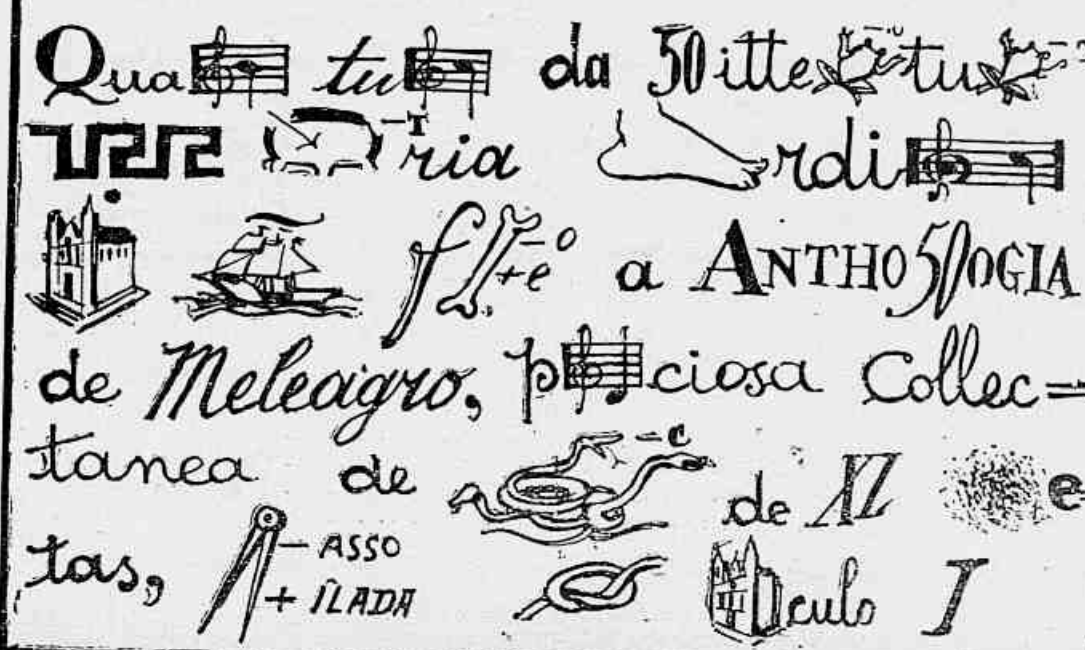 Qua tu da 50itte -iu tu
-T ria rdi
f -o +e a ANTHO50OGIA
de Meleagro, p ciosa Collec=
tanea de -c de XL e
tas, -ASSO +ÎLADA culo I